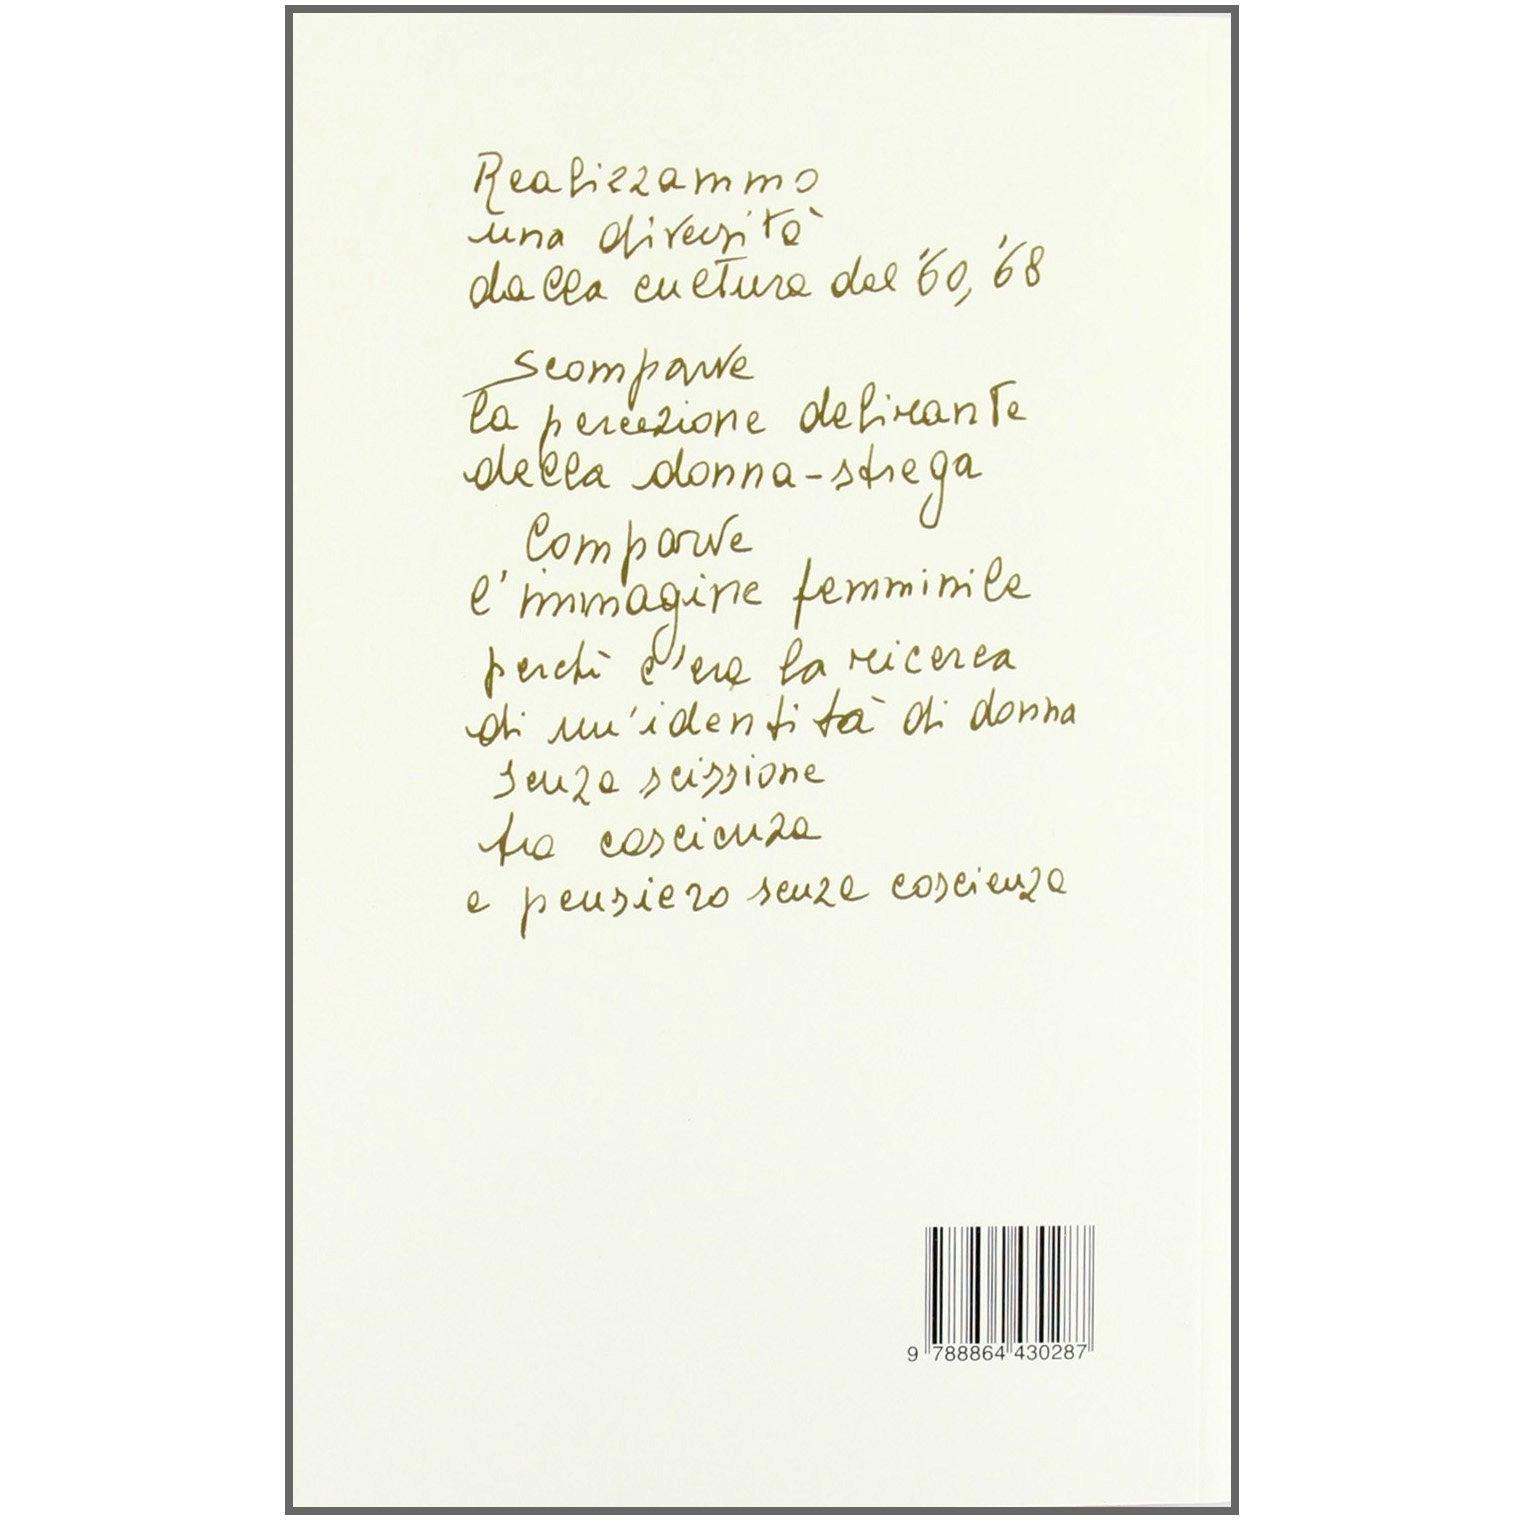 Realizzammo
una diversità
dalla cultura del '60, '68
Scomparve
la percezione delirante
della donna-strega
Comparve
l'immagine femminile
perchè c'era la ricerca
di un'identità di donna
senza scissione
tra coscienza
e pensiero senza coscienza
9 788864 430287